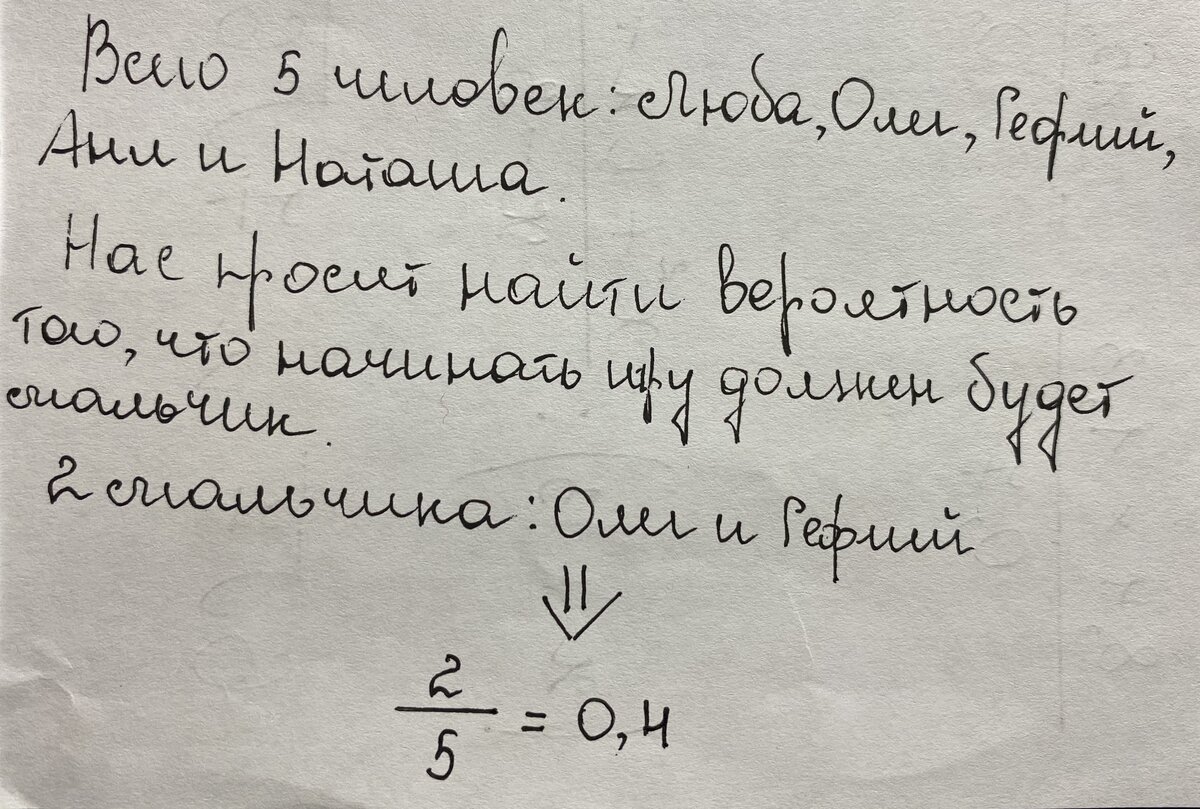 Всего 5 человек: Люба, Олег, Георгий,
Аня и Наташа.
Нас просят найти вероятность
того, что начинать игру должен будет
мальчик.
2 мальчика: Олег и Георгий
⇓
2
5 = 0,4